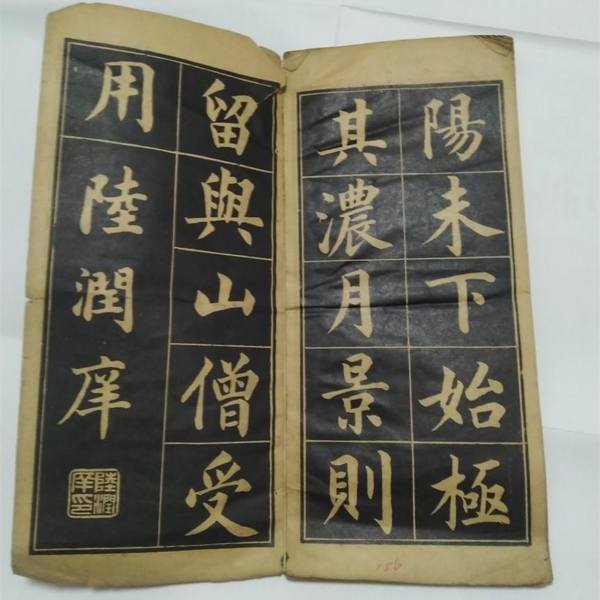 陽未下始極
其濃月景則
留與山僧受
用
陸潤庠
陸潤庠印
186